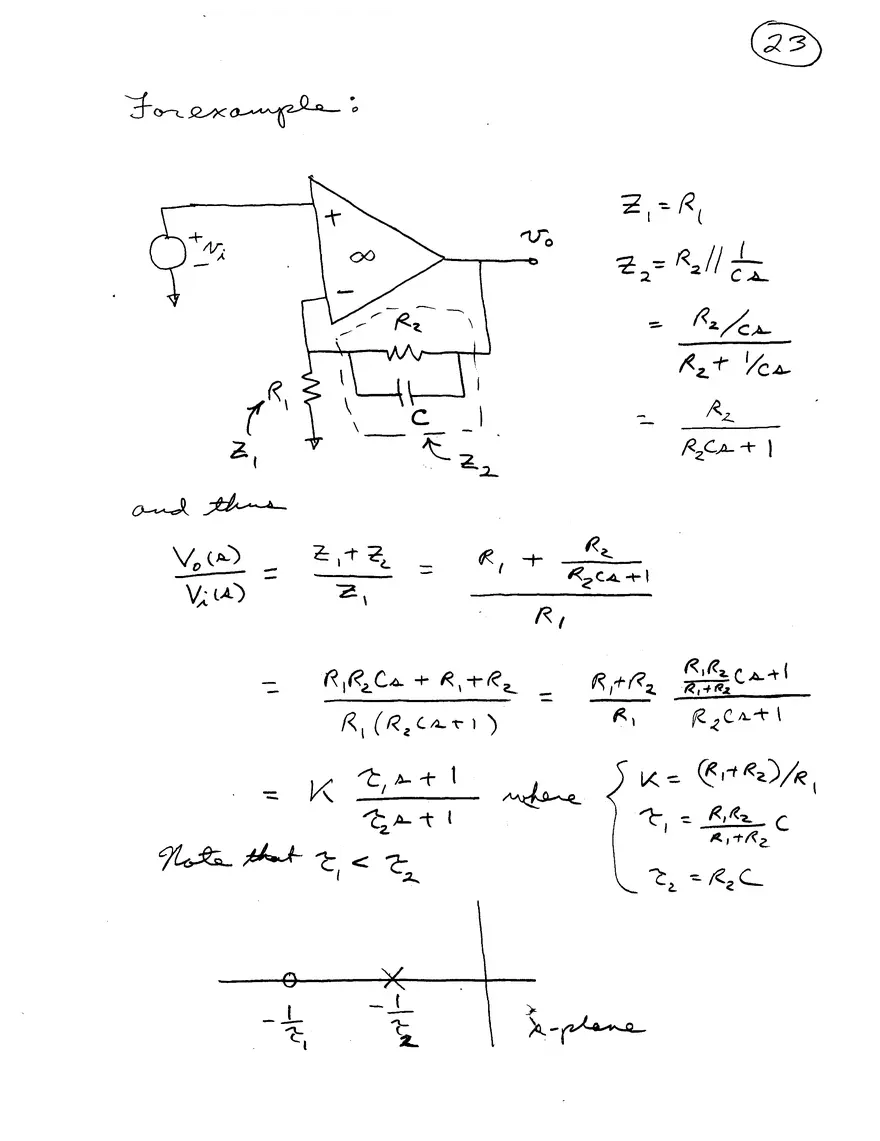 23
For example:
+
vi
−
+
∞
−
vo
R2
C
R1
Z1
Z2
Z1 = R1
Z2 = R2 // 1/Cs
= (R2/Cs)/(R2 + 1/Cs)
= R2/(R2Cs + 1)
and thus
Vo(s)/Vi(s) = (Z1 + Z2)/Z1 = (R1 + R2/(R2Cs+1))/R1
= (R1R2Cs + R1 + R2)/(R1(R2Cs+1)) = (R1+R2)/R1 (R1R2/(R1+R2) Cs+1)/(R2Cs+1)
= K (τ1s + 1)/(τ2s + 1) where { K = (R1+R2)/R1
τ1 = R1R2/(R1+R2) C
τ2 = R2C
Note that τ1 < τ2
-1/τ1
-1/τ2
s-plane